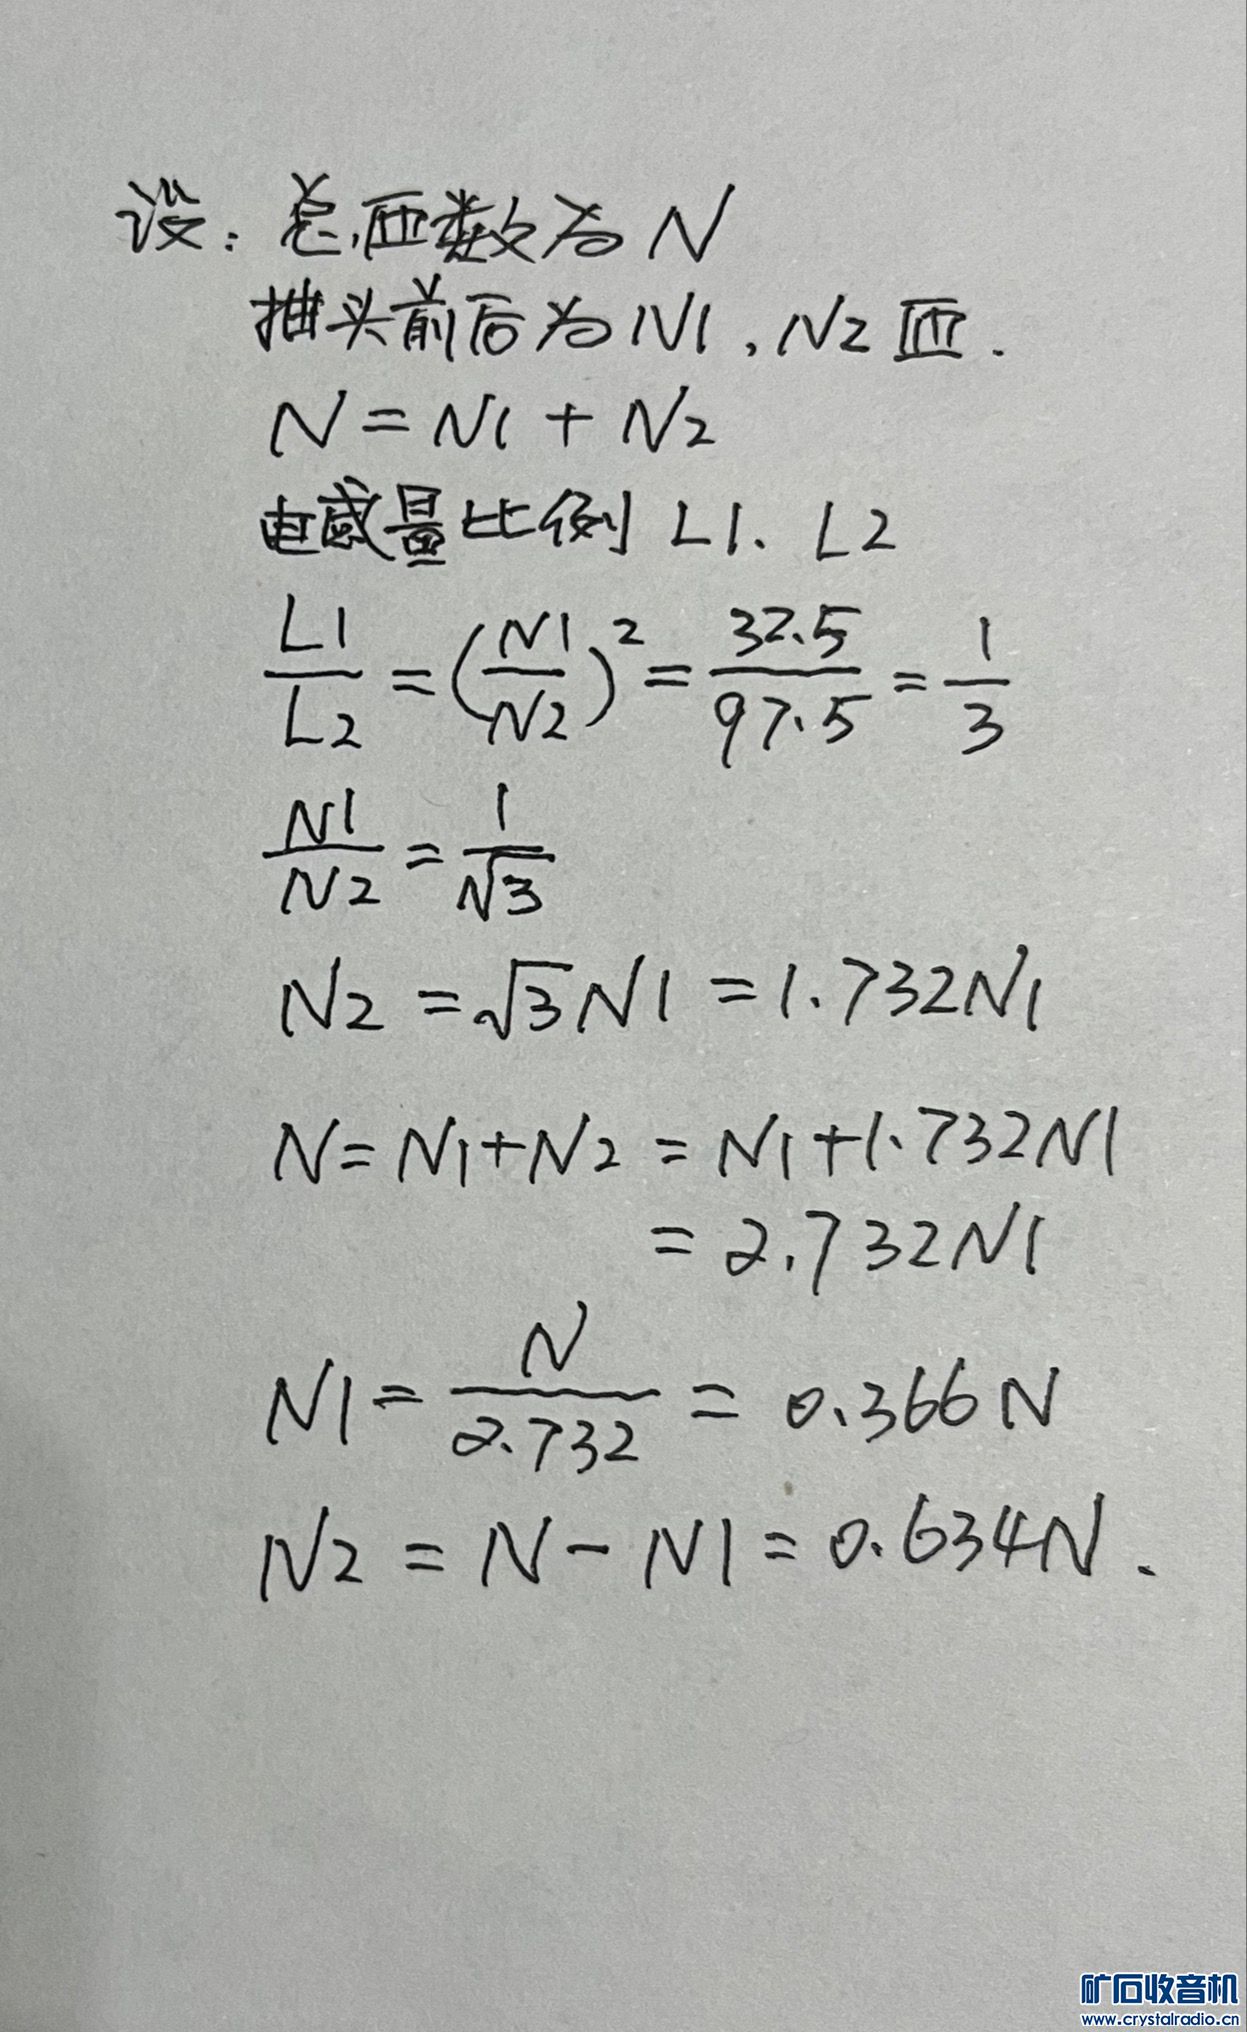 设：总匝数为N
抽头前后为N1，N2匝．
N=N1+N2
电感量比例L1、L2
L1/L2=(N1/N2)²=32.5/97.5=1/3
N1/N2=1/√3
N2=√3N1=1.732N1
N=N1+N2=N1+1.732N1
=2.732N1
N1=N/2.732=0.366N
N2=N-N1=0.634N．
矿石收音机
www.crystalradio.cn